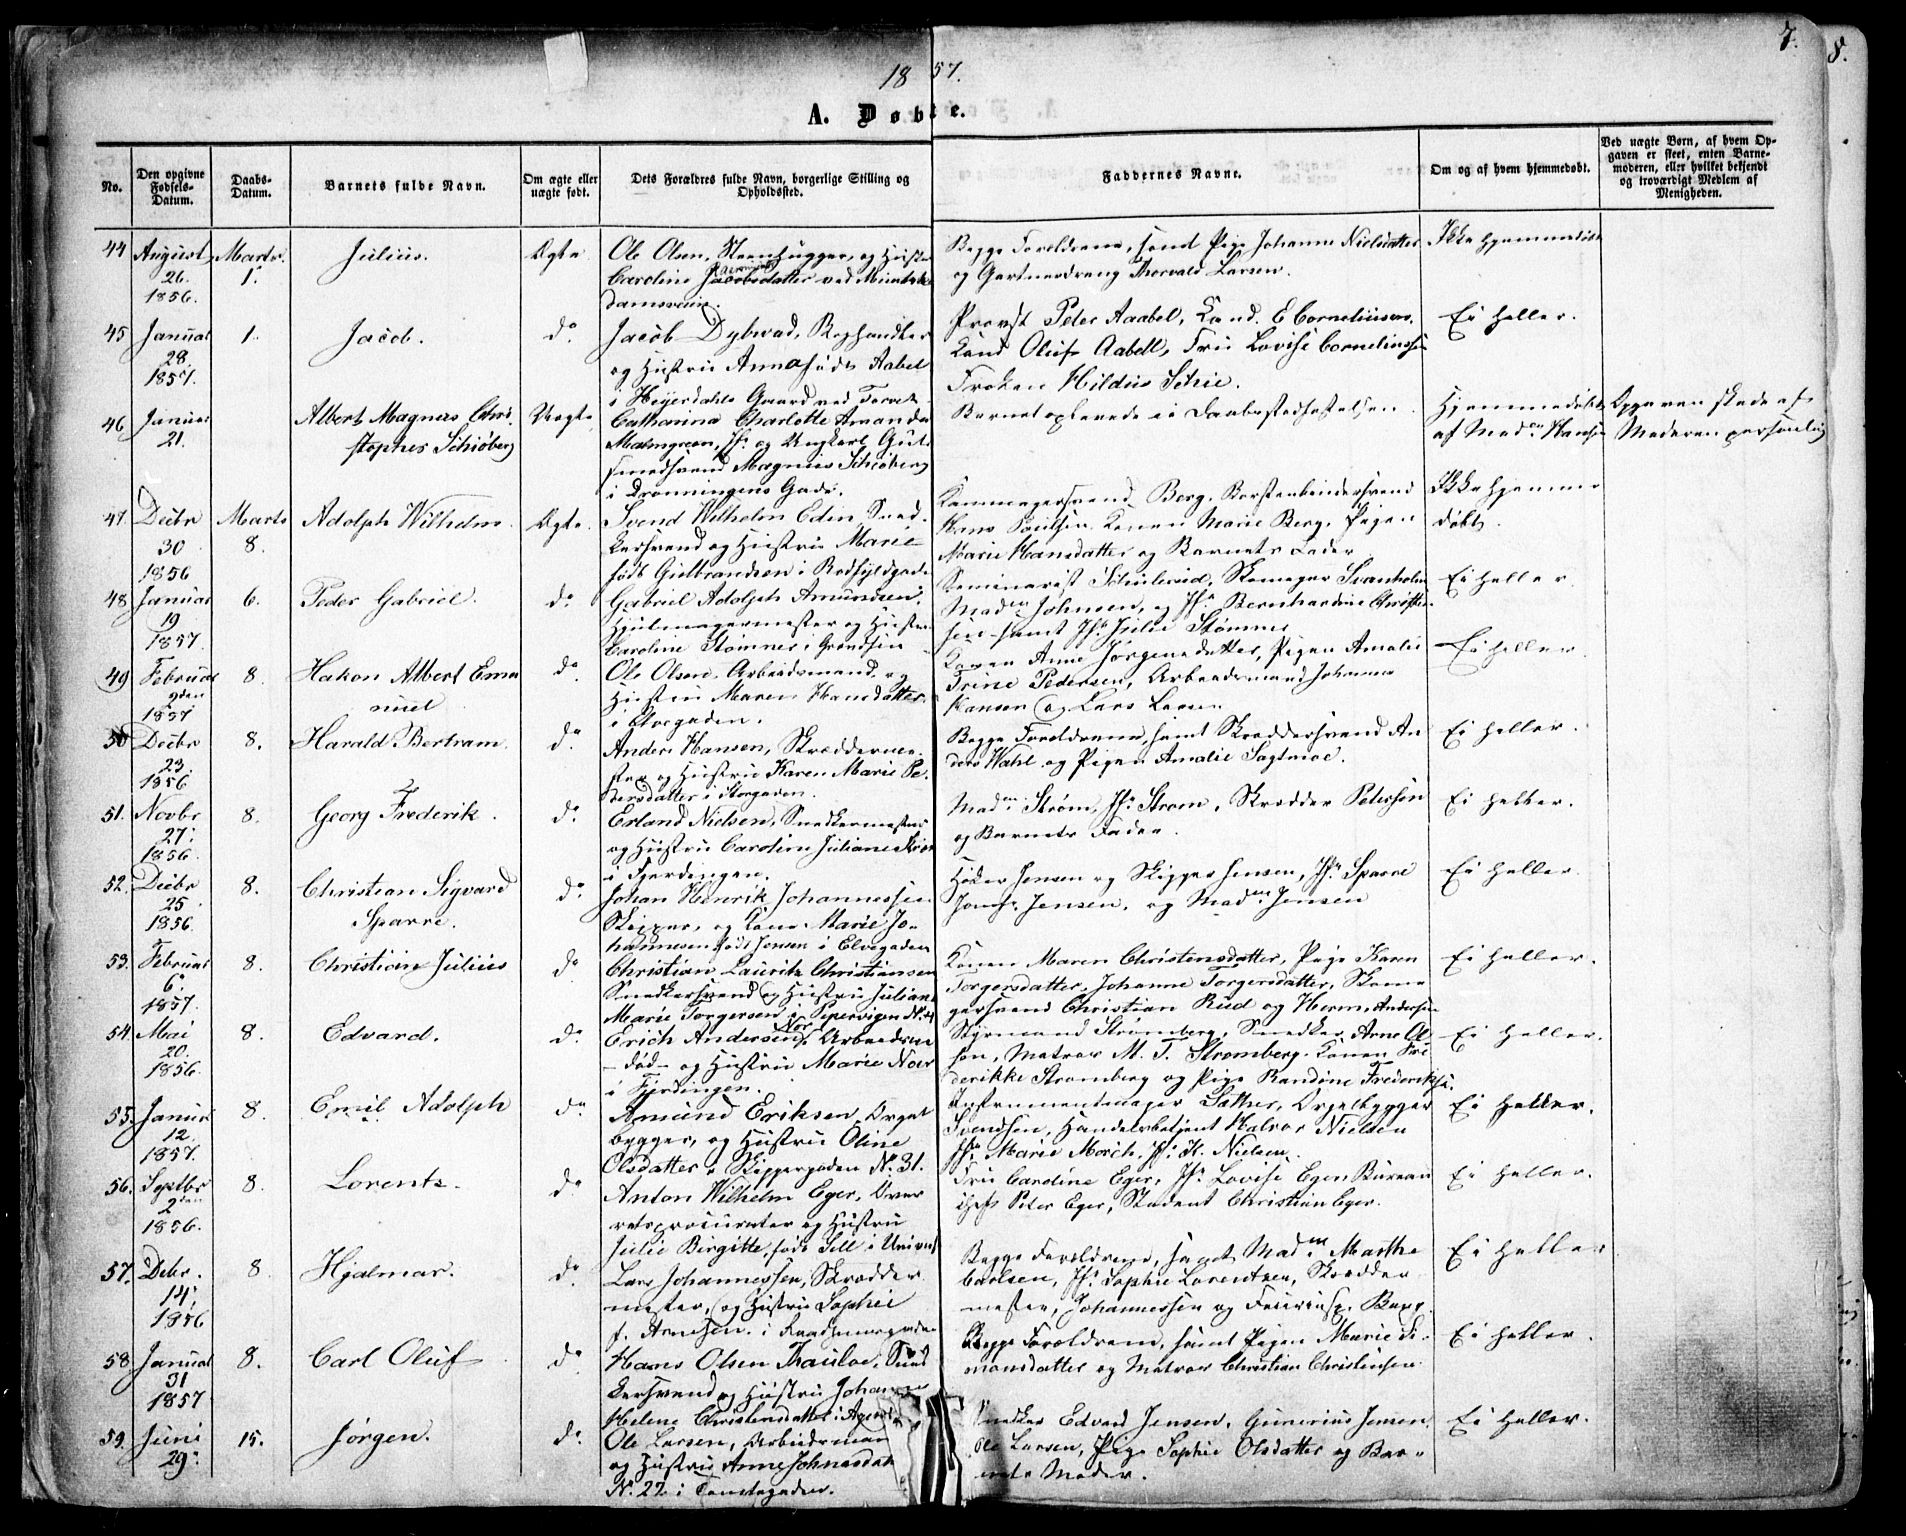 7.
8.
1857.
A. Døbte.
No.
Den opgivne Fødsels-Datum.
Daabs-Datum.
Barnets fulde Navn.
Om ægte eller uægte født.
Dets Forældres fulde Navn, borgerlige Stilling og Opholdssted.
Faddernes Navne.
Om og af hvem hjemmedøbt.
Ved uægte Børn, af hvem Opgaven er skeet, enten Barnemoderen, eller hvilket bekjendt og troværdigt Medlem af Menigheden.
44 August 26. 1856. Marts 1. Julius. Ægte
Ole Olsen, Steenhugger, og Hustru
Caroline Jacobsdatter ved
damsveien.
Begge Forældrene, samt Pige Johanne Nielsdatter
og Gartnerdreng Thorvald Larsen.
Ikke hjemmedøbt
45 Januar 28. 1857. 1. Jacob. do
Jacob Dybwad, Boghandler
og Hustru Anna født Aabel
i Heyerdahls Gaard ved Torvet
Provst Peter Aabel, Cand. E Corneliusen,
Cand Oluf Aabell, Fru Lovise Corneliussen
Frøken Schie.
Ei heller.
46 Januar 21. Albert Magnus Chri-
stopher Schiøberg Uægte
Catharina Charlotte Amanda
Malmgreen, Jfr og Ungkarl Guld
smedsvend Magnus Schiøberg
i Dronningens Gade.
Barnet oplevede ei Daabsstadfæstelsen
Hjemmedøbt
af Madm Hansen
Opgaven skede af
Moderen personlig
47. Decbr 30 1856 Marts 8. Adolph Wilhelm Ægte.
Svend Wilhelm Edin, Sned-
kersvend og Hustru Marie
født Gulbrandsen i Rødfyldgade
Kammagersvend Berg, Børstenbindersvend
Hans Poulsen, Konen Marie Berg, Pigen
Marie Hansdatter og Barnets Fader
Ikke hjemme
døbt.
48 Januar 19 1857. 6. Peder Gabriel. do
Gabriel Adolph Amundsen,
Hjulmagermester og Hustru
Caroline Stømner i Grændsen
Seminarist Schulerud, Skomager Svanholm
Madm Johnsen, og Jfr Bernhardine Christen-
sen samt Jfr Julie Stømner
Ei heller
49 Februar 9den 1857 8. Hakon Albert Ema
nuel do
Ole Olsen, Arbeidsmand og
Hustru Maren Hansdatter
i Storgaden.
Konen Anne Jørgensdatter, Pigen Amalie
Trine Pedersen, Arbeidsmand Johannes
Hansen og Lars Larsen
Ei heller.
50 Decbr 23. 1856 8. Harald Bertram. do
Anders Hansen, Skræddermes-
ster og Hustru Karen Marie Pe-
dersdatter i Storgaden.
Begge Forældrene, samt Skræddersvend An
ders Wahl og Pigen Amalie Sagtmoe.
Ei heller.
51. Novbr 27. 1856. 8. Georg Frederik. do
Erland Nielsen, Snedkermester
og Hustru Caroline Juliane
i Fjerdingen.
Madm Strøm, Jfr Strøm, Skrædder Petersen
og Barnets Fader.
Ei heller.
52. Decbr 25 1856. 8. Christian Sigvard
Sparre. do
Johan Henrik Johannessen
Skipper, og Kone Marie Jo-
hannesen født Jensen i Elvegaden
Høker Jensen og Skipper Jensen, Jfr Sparre
Jomfr. Jensen, og Madm Jensen
Ei heller
53. Februar 6. 1857. 8. Christian Julius do
Christian Lauritz Christiansen
Snedkersvend og Hustru Julian
Marie Torgersen i Pipervigen No
Konen Maren Christensdatter, Pige Karen
Torgersdatter, Johanne Torgersdatter, Skoma
gersvend Christian Rud og Herm. Andersen
Ei heller.
54. Mai 20. 1856. 8. Edvard. do
Erich Andersen Noer, Arbeidsm
død og Hustru Marie Noer
i Fjerdingen.
Styrmand Strømberg, Snedker Arne Ol
sen, Matros M. T. Strømberg, Konen Fre
derikke Strømberg og Pige Randine Frederiks.
Ei heller.
55. Januar 12. 1857. 8. Emil Adolph do
Amund Eriksen, Orgel
bygger, og Hustru Oline
Olsdatter i Skippergaden No 31.
Instrumentmager Sæther, Orgelbygger
Svendsen, Handelsbetjent Halvor Nielsen
Jfr Marie Morch, Jfr H. Nielsen.
Ei heller.
56. Septbr 2den 1856. 8. Lorentz. do
Anton Wilhelm Eger, Over
retsprocurator og Hustru
Julie Birgitte, født Sell i Univers
Fru Caroline Eger, Jfr Lovise Eger, Bureau
chef Peter Eger, Student Christian Eger.
Ei heller.
57. Debr. 14. 1856 8. Hjalmar. do
Lars Johannessen, Skrædder
mester, og Hustru Sophie
f. Arnesen. i
Begge Forældrene, samt Madm Marthe
Carlsen, Jfr Sophie Lorentzen, Skrædder
mester, Johannessen og
Ei heller
58 Januar 31 1857 8. Carl Oluf do
Hans Olsen Fauloe, Sned
kersvend og Hustru Johanne
Helene Christensdatter i
Begge Forældrene, samt Pigen Marie Si-
monsdatter og Matros Christian Christensen.
Ei heller.
59. Juni 29. 15. Jørgen. do
Ole Larsen, Arbeidsman
og Hustru Anne Johnsdat
N. 22 i Tomtegaden.
Snedker Edvard Jensen, Gunerius Jensen,
Ole Larsen, Pige Sophie Olsdatter og Bar-
nets Moder.
Ei heller.